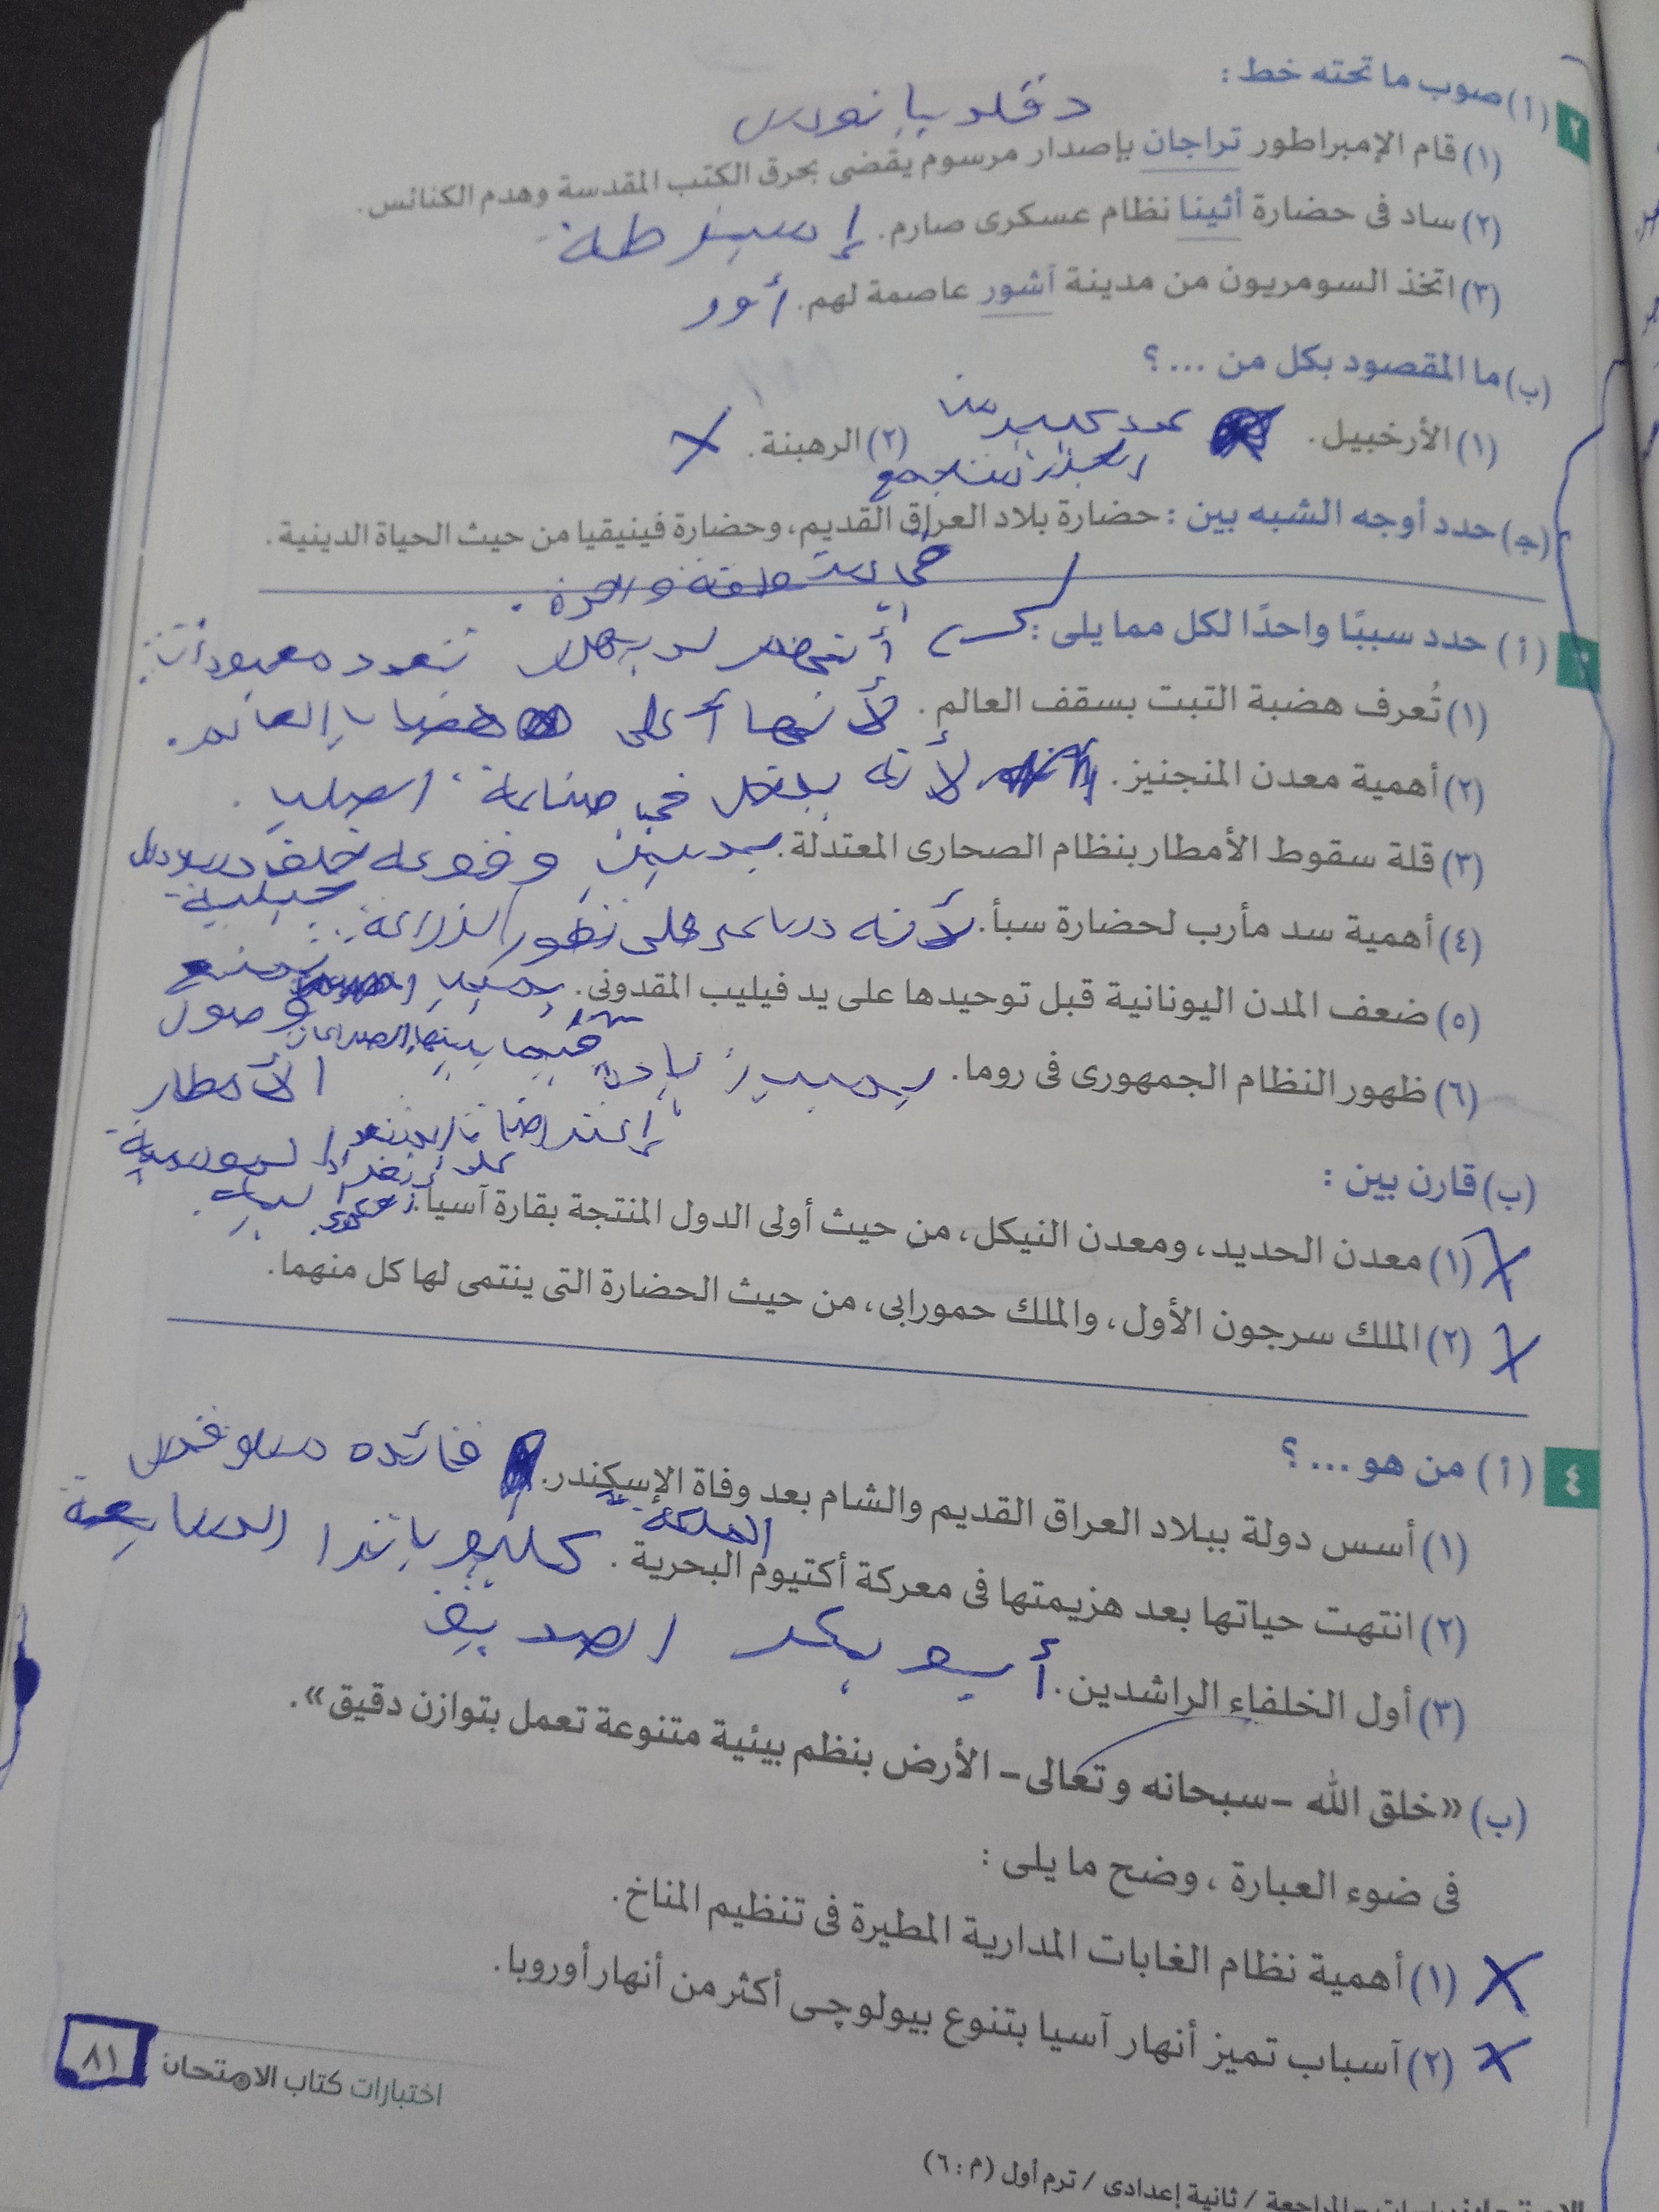 ٢ (أ) صوب ما تحته خط :
دقلديانوس
(١) قام الإمبراطور تراجان بإصدار مرسوم يقضى بحرق الكتب المقدسة وهدم الكنائس.
(٢) ساد فى حضارة أثينا نظام عسكرى صارم. إسبرطة
(٣) اتخذ السومريون من مدينة آشور عاصمة لهم. أور
(ب) ما المقصود بكل من ... ؟
(١) الأرخبيل. عدد كبير من (٢) الرهبنة.
الجزر
(جـ) حدد أوجه الشبه بين : حضارة بلاد العراق القديم، وحضارة فينيقيا من حيث الحياة الدينية.
فى منطقة واحدة.
(أ) حدد سببًا واحدًا لكل مما يلى :
تعدد معبودات
(١) تُعرف هضبة التبت بسقف العالم. لأنها أعلى هضاب العالم.
(٢) أهمية معدن المنجنيز. لأنه يدخل فى صناعة الصلب.
(٣) قلة سقوط الأمطار بنظام الصحارى المعتدلة. بسبب وقوعه خلف سلاسل
جبلية
(٤) أهمية سد مأرب لحضارة سبأ. لأنه ساعد على تطور الزراعة.
تمنع
(٥) ضعف المدن اليونانية قبل توحيدها على يد فيليب المقدونى. بسبب
وصول
فيما بينها
(٦) ظهور النظام الجمهورى فى روما. بسبب
الأمطار
على انفراد
(ب) قارن بين :
(١) معدن الحديد، ومعدن النيكل، من حيث أولى الدول المنتجة بقارة آسيا.
(٢) الملك سرجون الأول، والملك حمورابى، من حيث الحضارة التى ينتمى لها كل منهما.
٤ (أ) من هو ... ؟
(١) أسس دولة ببلاد العراق القديم والشام بعد وفاة الإسكندر. قائده سلوقس
الملكة
(٢) انتهت حياتها بعد هزيمتها فى معركة أكتيوم البحرية. كليوباترا السابعة
(٣) أول الخلفاء الراشدين. أبو بكر الصديق
(ب) «خلق الله - سبحانه وتعالى - الأرض بنظم بيئية متنوعة تعمل بتوازن دقيق».
فى ضوء العبارة، وضح ما يلى :
(١) أهمية نظام الغابات المدارية المطيرة فى تنظيم المناخ.
(٢) أسباب تميز أنهار آسيا بتنوع بيولوچى أكثر من أنهار أوروبا.
اختبارات كتاب الامتحان ٨١
المراجعة / ثانية إعدادى / ترم أول (م : ٦)